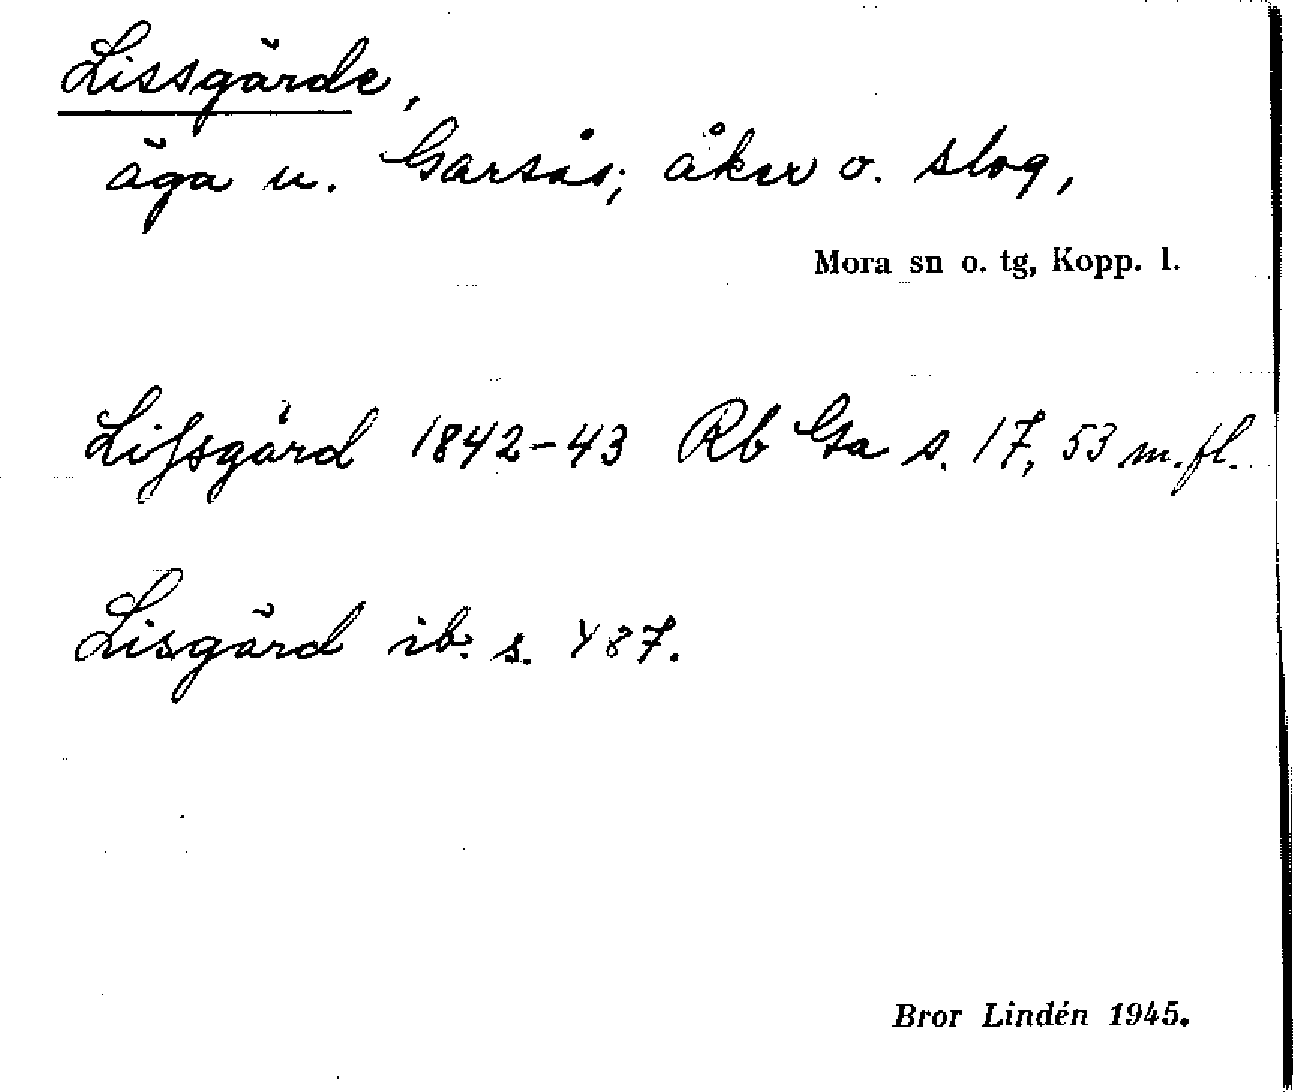 Lissgärde,
äga u. Garsås; åker o. slog,
Mora sn o. tg, Kopp. l.
Lifsgård 1842-43 Rb Ga s. 17, 53 m.fl.
Lisgärd ib. s. 487.
Bror Lindén 1945.